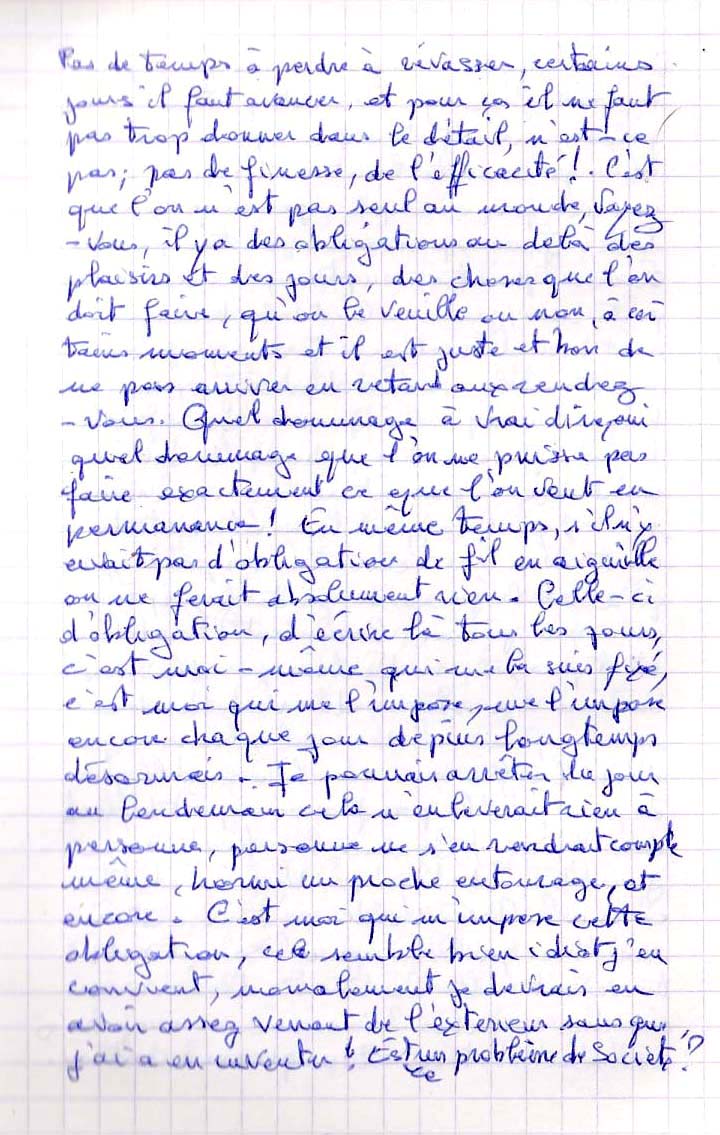 Pas de temps à perdre à rêvasser, certains
jours il faut avancer, et pour ça il ne faut
pas trop donner dans le détail, n'est-ce
pas; pas de finesse, de l'efficacité! . C'est
que l'on n'est pas seul au monde, voyez
-vous, il y a des obligations au delà des
plaisirs et des jours, des choses que l'on
doit faire, qu'on le veuille ou non, à cer
tains moments et il est juste et bon de
ne pas arriver en retard aux rendez
-vous. Quel dommage à vrai dire, oui
quel dommage que l'on ne puisse pas
faire exactement ce que l'on veut en
permanance! En même temps, s'il n'y
avait pas d'obligation de fil en aiguille
on ne ferait absolument rien. Celle-ci
d'obligation, d'écrire là tous les jours,
c'est moi-même qui me la suis fixé,
c'est moi qui me l'impose, me l'impose
encore chaque jour depuis longtemps
désormais. Je pourrais arrêter du jour
au lendemain cela n'enleverait rien à
personne, personne ne s'en rendrait compte
même, hormi un proche entourage, et
encore. C'est moi qui m'impose cette
obligation, cela semble bien idiot j'en
convient, normalement je devrais en
avoir assez venant de l'exterieur sans que
j'ai a en inventer! Est ce un problème de Société?